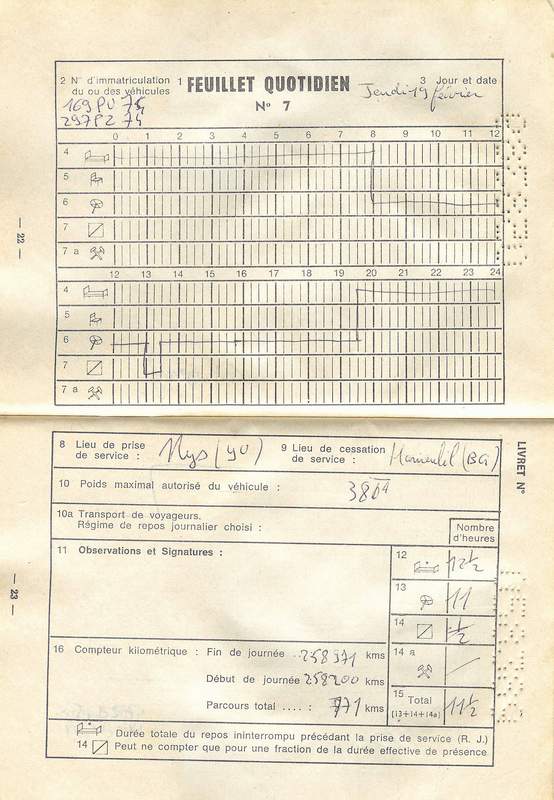 2 N° d'immatriculation 1 FEUILLET QUOTIDIEN 3 Jour et date
du ou des véhicules
N° 7
Jeudi 19 février
169 PU 75
297 PZ 74
0 1 2 3 4 5 6 7 8 9 10 11 12
4
5
6
7
7 a
12 13 14 15 16 17 18 19 20 21 22 23 24
4
5
6
7
7 a
— 22 —
8 Lieu de prise de service : (YU)
9 Lieu de cessation de service : (BG)
LIVRET N°
10 Poids maximal autorisé du véhicule : 38
10a Transport de voyageurs.
Régime de repos journalier choisi :
Nombre d'heures
11 Observations et Signatures :
12 12 1/2
13 11
14 1/2
— 23 —
16 Compteur kilométrique : Fin de journée ..258371 kms
14 a /
Début de journée 258200 kms
Parcours total .... : 771 kms
15 Total (13+14+14a) 11 1/2
Durée totale du repos ininterrompu précédant la prise de service (R. J.)
14 Peut ne compter que pour une fraction de la durée effective de présence